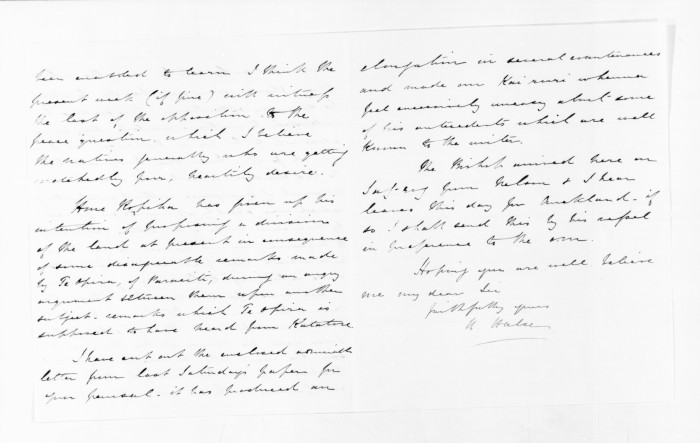 been enabled to learn I think the
present week (if fine) will witness
the last of the opposition to the
peace question which I believe
the natives generally who are getting
wretchedly poor, heartily desire.
Hone Ropiha has given up his
intention of proposing a division
of the land at present in consequence
of some disagreeable remarks made
by Te Apira, of Paraiti, during an angry
argument between them upon another
subject. remarks which Te Apira is
supposed to have heard from Katatore
I have cut out the enclosed
letter from last Saturday's paper for
your perusal. it has produced an
elongation in several countenances
and made our Kai ruri whenua
feel excessively uneasy about some
of his antecedents which are well
known to the writer.
The Bishop arrived here on
from Nelson & I hear
leaves this day for Auckland. if
so I shall send this by his vessel
in preference to the
Hoping you are well believe
me my dear Sir
faithfully yours
H Halse